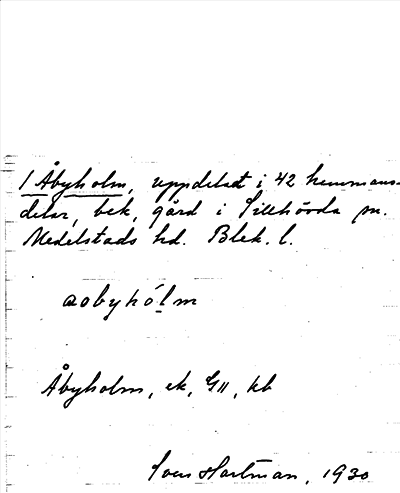 1 Åbyholm, uppdelat i 42 hemmans-
delar, bek, gård i Sillhövda sn.
Medelstads hd. Blek. l.
aobyhólm
Åbyholm, ek, GII, kb
Sven Hartman, 1930